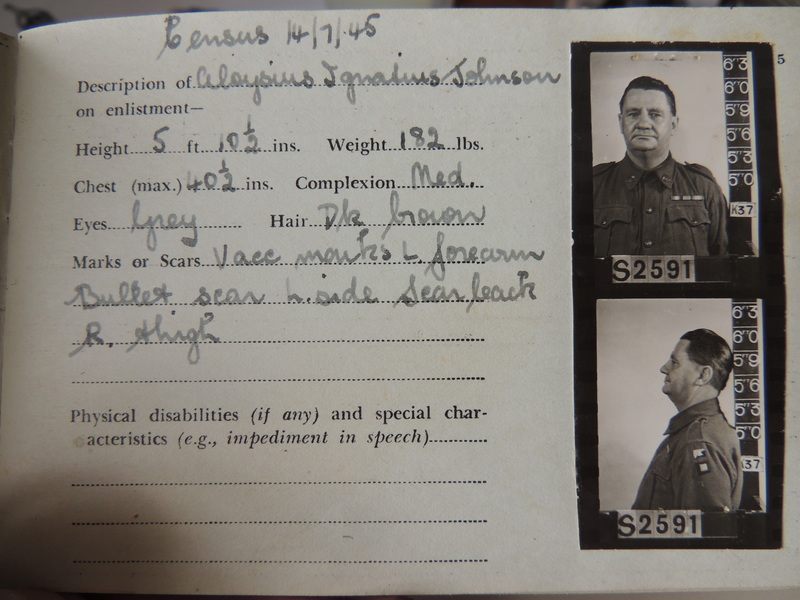 Census 14/7/45
5
Description of Aloysius Ignatius Johnson
on enlistment—
Height 5 ft 10½ ins. Weight 182 lbs.
Chest (max.) 40½ ins. Complexion Med.
Eyes Grey Hair Dk brown
Marks or Scars Vacc marks L forearm
Bullet scar L. side Scar back
R. thigh
Physical disabilities (if any) and special char-
acteristics (e.g., impediment in speech)
6'3
6'0
5'9
5'6
5'3
5'0
K37
S2591
6'3
6'0
5'9
5'6
5'3
5'0
37
S2591